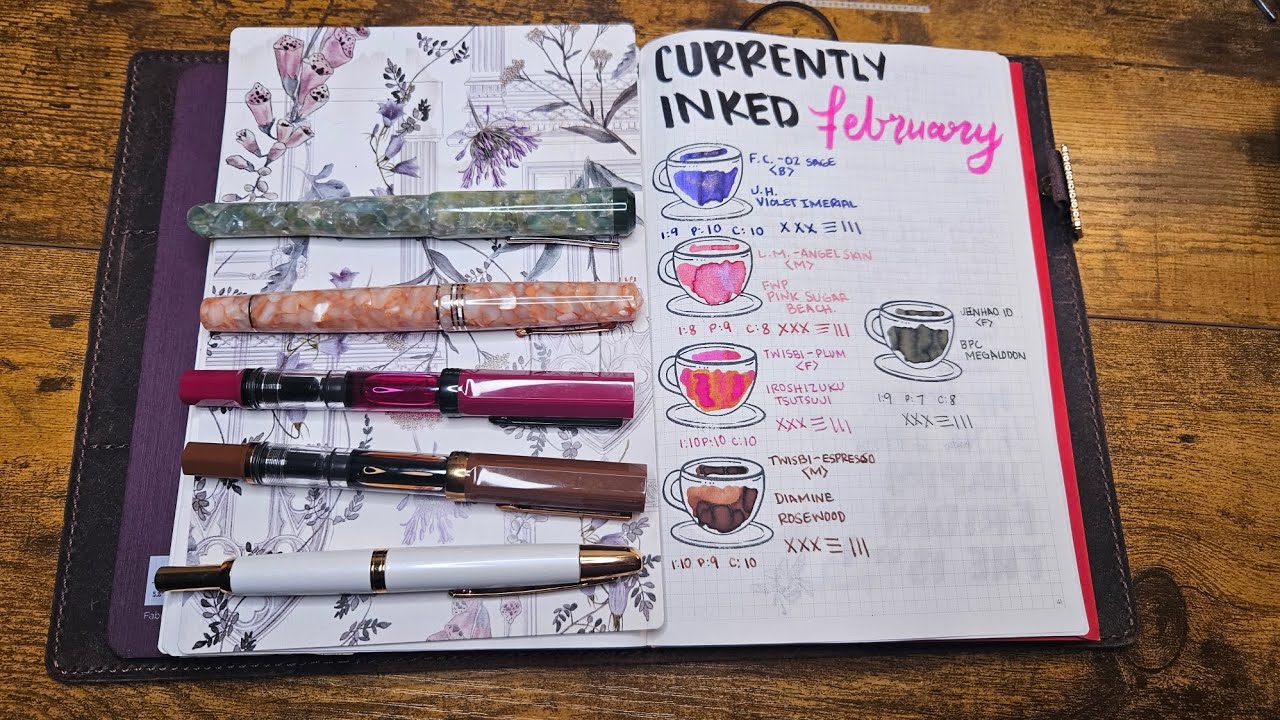 CURRENTLY
INKED february
F.C.-02 SAGE
<B>
J.H.
VIOLET IMERIAL
I:9 P:10 C:10 XXX ☰ |||
L.M.-ANGEL SKIN
<M>
FWP
PINK SUGAR
BEACH
I:8 P:9 C:8 XXX ☰ |||
TWISBI-PLUM
<F>
IROSHIZUKU
TSUTSUJI
XXX ☰ |||
I:10 P:10 C:10
TWISBI-ESPRESSO
<M>
DIAMINE
ROSEWOOD
XXX ☰ |||
I:10 P:9 C:10
JINHAO 10
<F>
BPC
MEGALODON
I:9 P:7 C:8
XXX ☰ |||
41
Fab